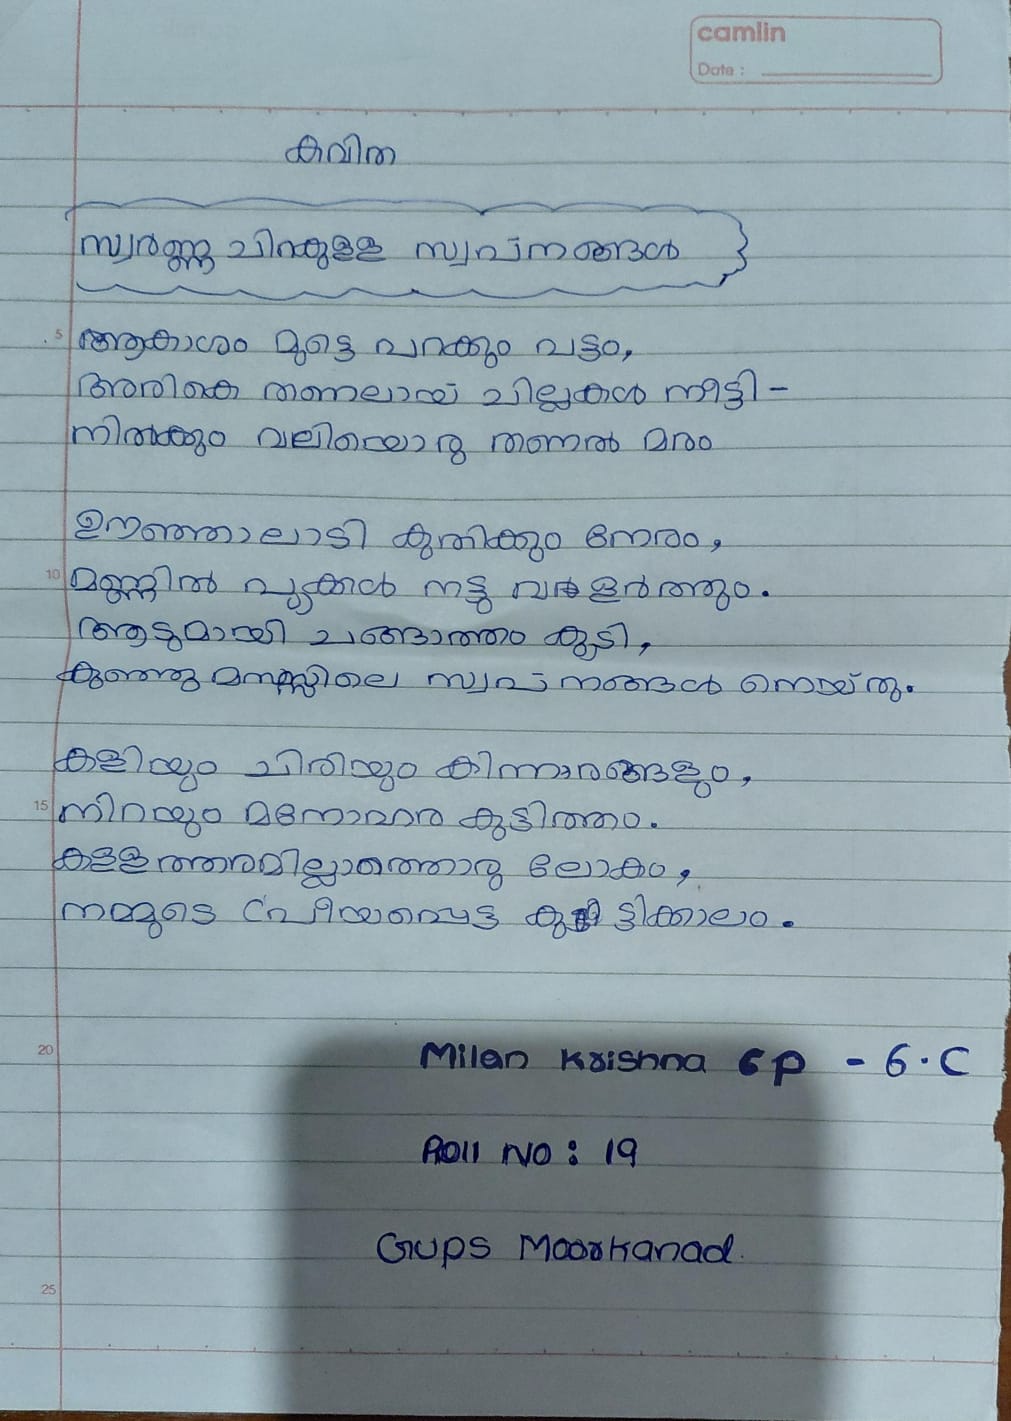 camlin
Date :
കവിത
സ്വർണ്ണ ചിറകുള്ള സ്വപ്നങ്ങൾ
5 ആകാശം മുട്ടെ പറക്കും പട്ടം,
അരികെ തണലായ് ചില്ലകൾ നീട്ടി -
നിൽക്കും വലിയൊരു തണൽ മരം
ഊഞ്ഞാലാടി കുതിക്കും നേരം,
10 മണ്ണിൽ പൂക്കൾ നട്ടു വളർത്തും.
ആടുമായി ചങ്ങാത്തം കൂടി,
കുഞ്ഞു മനസ്സിലെ സ്വപ്നങ്ങൾ നെയ്തു.
കളിയും ചിരിയും കിന്നാരങ്ങളും,
15 നിറയും മനോഹര കുട്ടിത്തം.
കള്ളത്തരമില്ലാത്തൊരു ലോകം,
നമ്മുടെ പ്രീയപ്പെട്ട കുട്ടിക്കാലം.
20 Milan Krishna 6P - 6.C
Roll No : 19
GUPS Moorkanad.
25